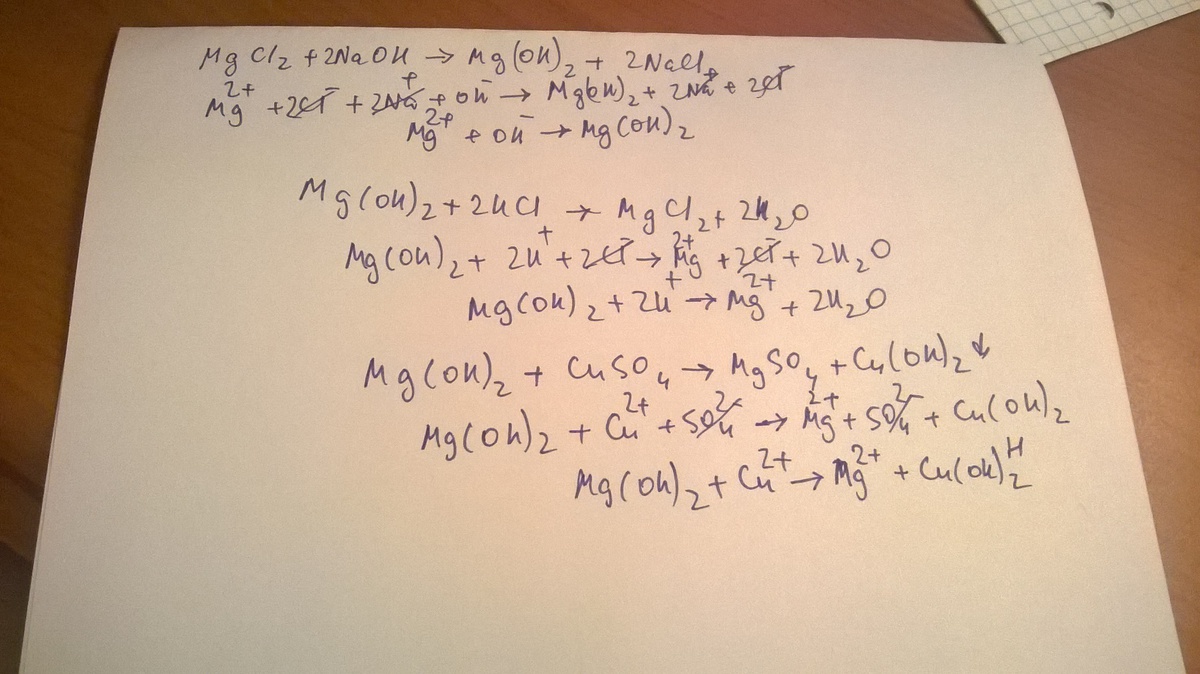 MgCl₂ + 2NaOH → Mg(OH)₂ + 2NaCl
Mg²⁺ + 2Cl⁻ + 2Na⁺ + OH⁻ → Mg(OH)₂ + 2Na⁺ + 2Cl⁻
Mg²⁺ + OH⁻ → Mg(OH)₂
Mg(OH)₂ + 2HCl → MgCl₂ + 2H₂O
Mg(OH)₂ + 2H⁺ + 2Cl⁻ → Mg²⁺ + 2Cl⁻ + 2H₂O
Mg(OH)₂ + 2H⁺ → Mg²⁺ + 2H₂O
Mg(OH)₂ + CuSO₄ → MgSO₄ + Cu(OH)₂ ↓
Mg(OH)₂ + Cu²⁺ + SO₄²⁻ → Mg²⁺ + SO₄²⁻ + Cu(OH)₂
Mg(OH)₂ + Cu²⁺ → Mg²⁺ + Cu(OH)₂ᴴ